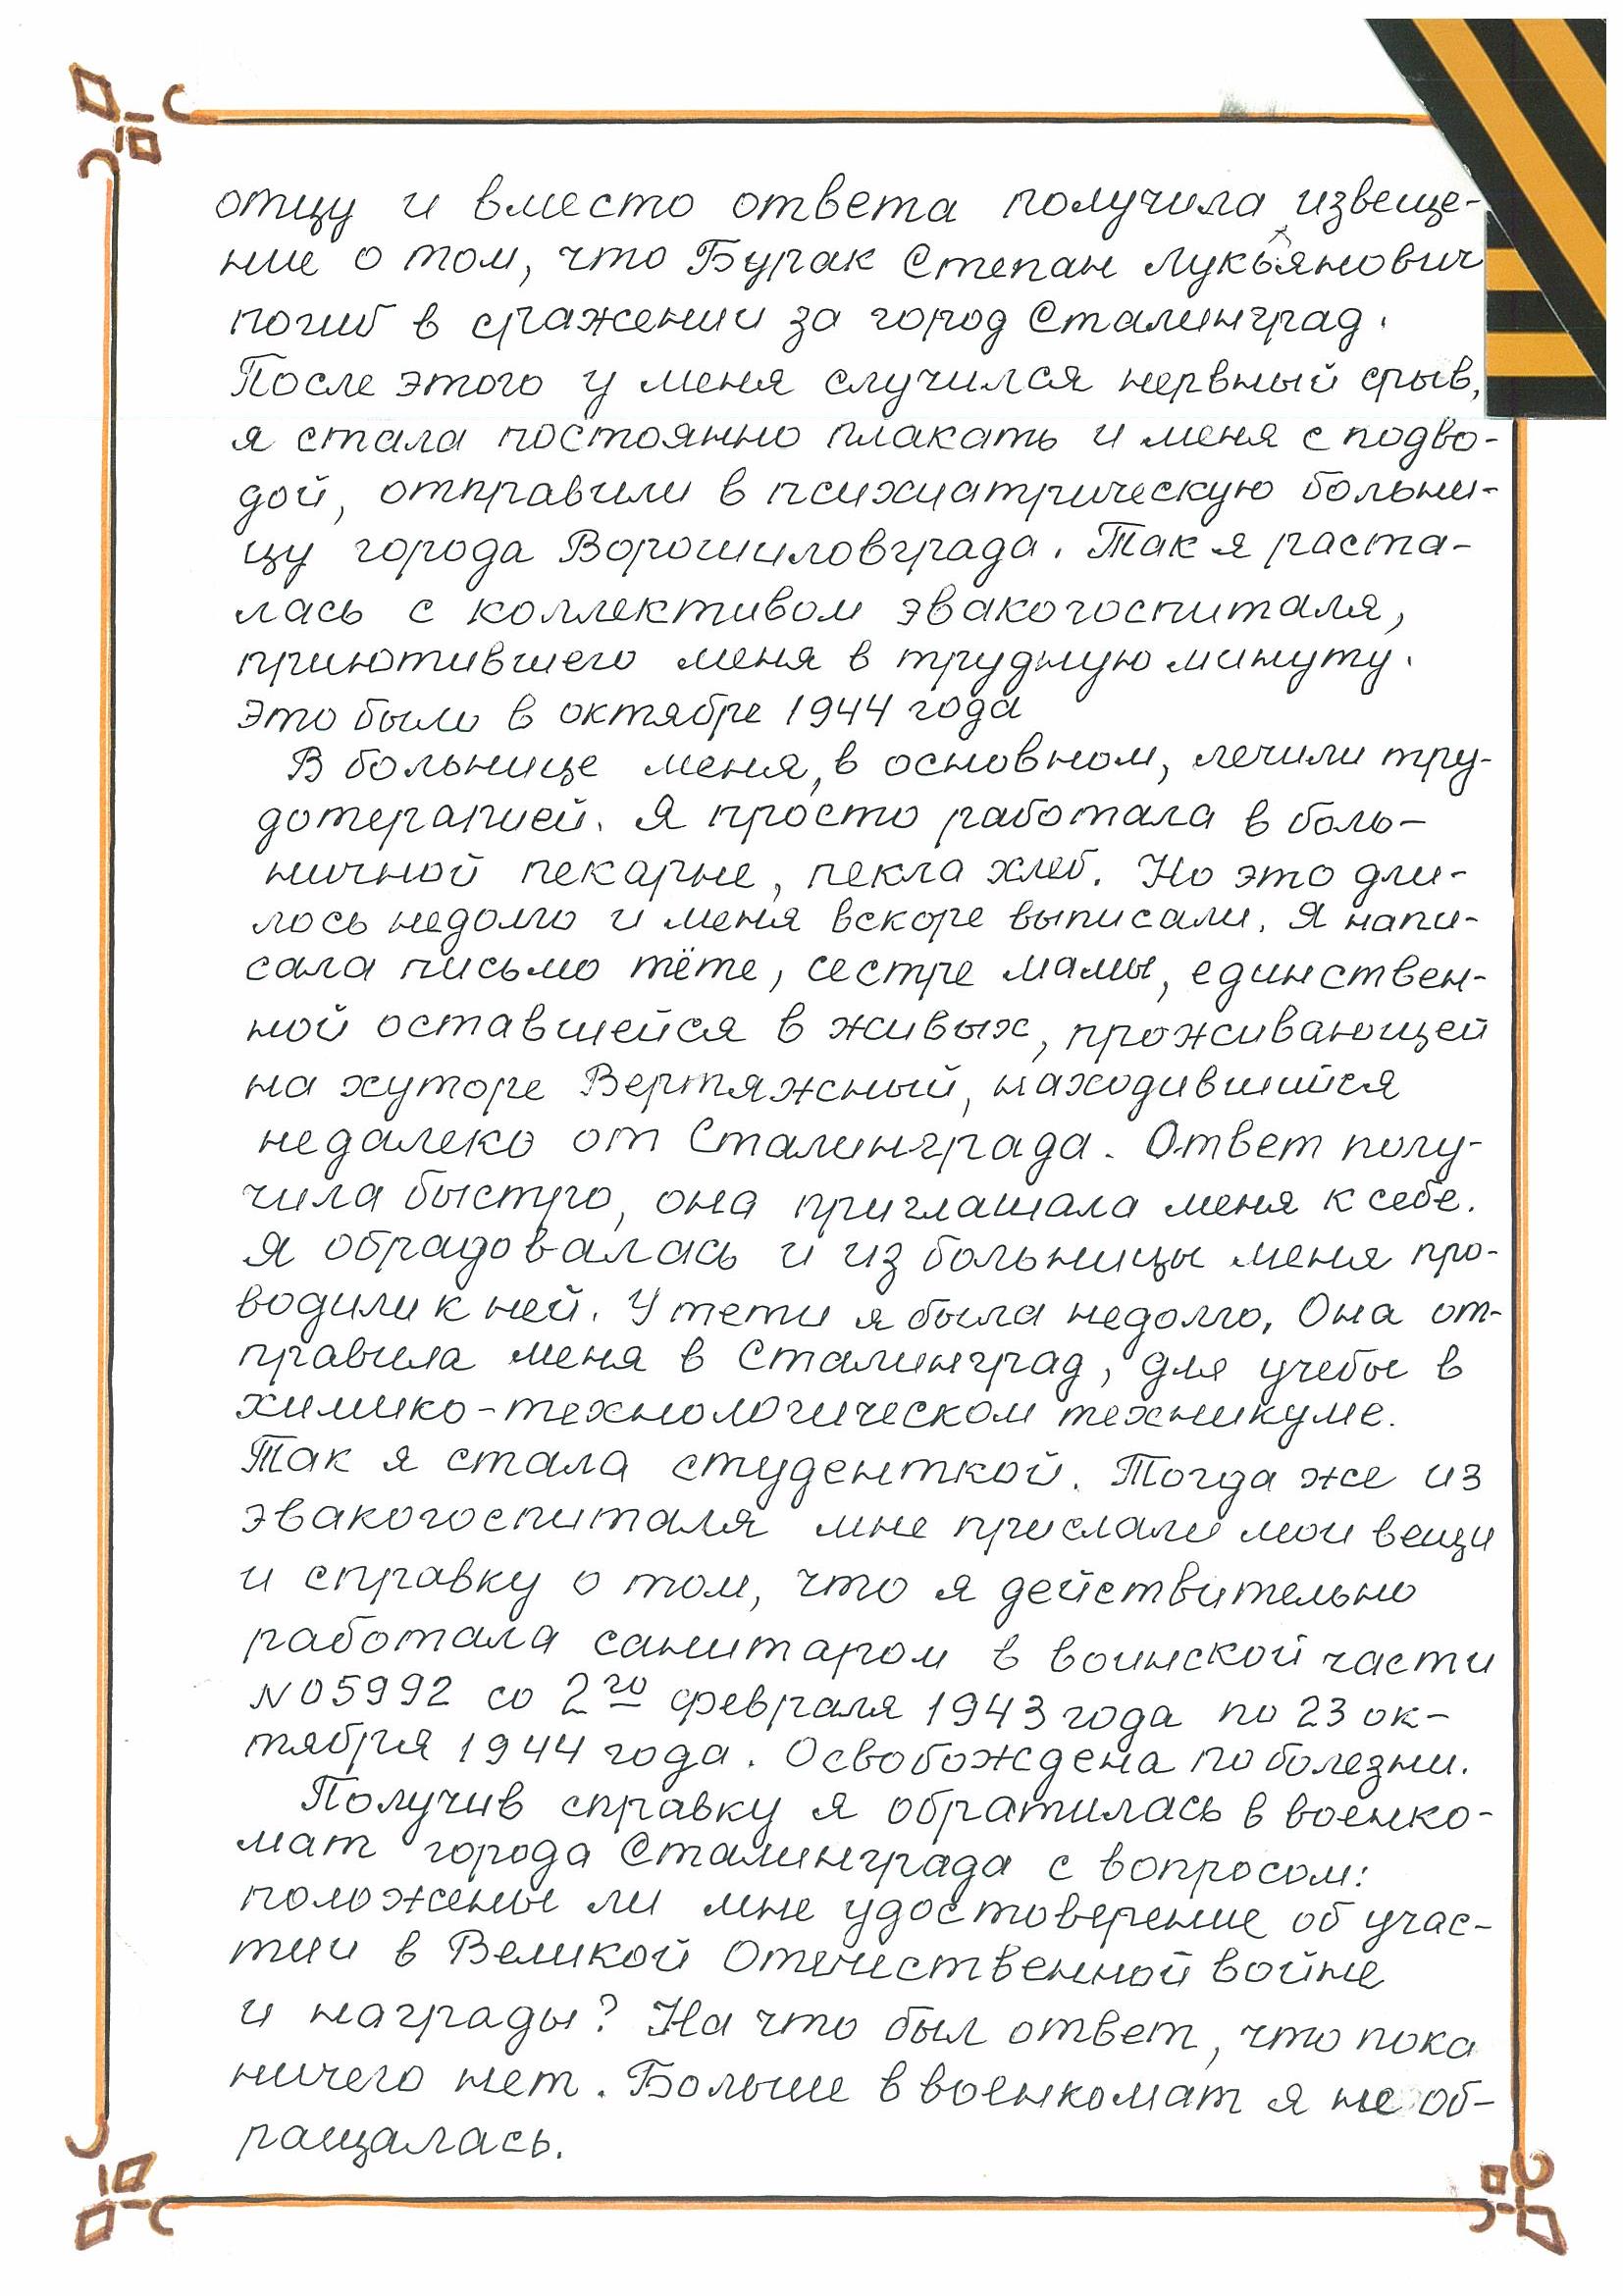 отцу и вместо ответа получила извеще-
ние о том, что Бурак Степан Лукьянович
погиб в сражении за город Сталинград.
После этого у меня случился нервный срыв,
я стала постоянно плакать и меня с подво-
дой, отправили в психиатрическую больни-
цу города Ворошиловграда. Так я раста-
лась с коллективом эвакогоспиталя,
приютившего меня в трудную минуту.
Это было в октябре 1944 года
В больнице меня, в основном, лечили тру-
дотерапией. Я просто работала в боль-
ничной пекарне, пекла хлеб. Но это дли-
лось недолго и меня вскоре выписали. Я напи-
сала письмо тёте, сестре мамы, единствен-
ной оставшейся в живых, проживающей
на хуторе Вертяжный, находившийся
недалеко от Сталинграда. Ответ полу-
чила быстро, она приглашала меня к себе.
Я обрадовалась и из больницы меня про-
водили к ней. У тети я была недолго, Она от-
правила меня в Сталинград, для учебы в
химико-технологическом техникуме.
Так я стала студенткой. Тогда же из
эвакогоспиталя мне прислали мои вещи
и справку о том, что я действительно
работала санитаром в воинской части
N05992 со 2го февраля 1943 года по 23 ок-
тября 1944 года. Освобождена по болезни.
Получив справку я обратилась в военко-
мат города Сталинграда с вопросом:
положены ли мне удостоверение об учас-
тии в Великой Отечественной войне
и награды? На что был ответ, что пока
ничего нет. Больше в военкомат я не об-
ращалась.